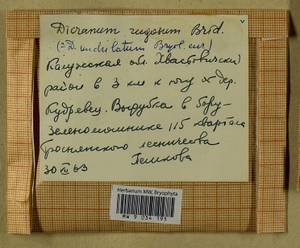 Dicranum rugosum Brid.
(=D. undulatum Bryol. eur)
Калужская обл. Хвастовичский
район в 3 км к югу от дер.
Кудрявец. Вырубка в бору-
зеленомошнике 115 квартал
лесничества
30 VII 63
Herbarium MW, Bryophyta
MW 9 034 195